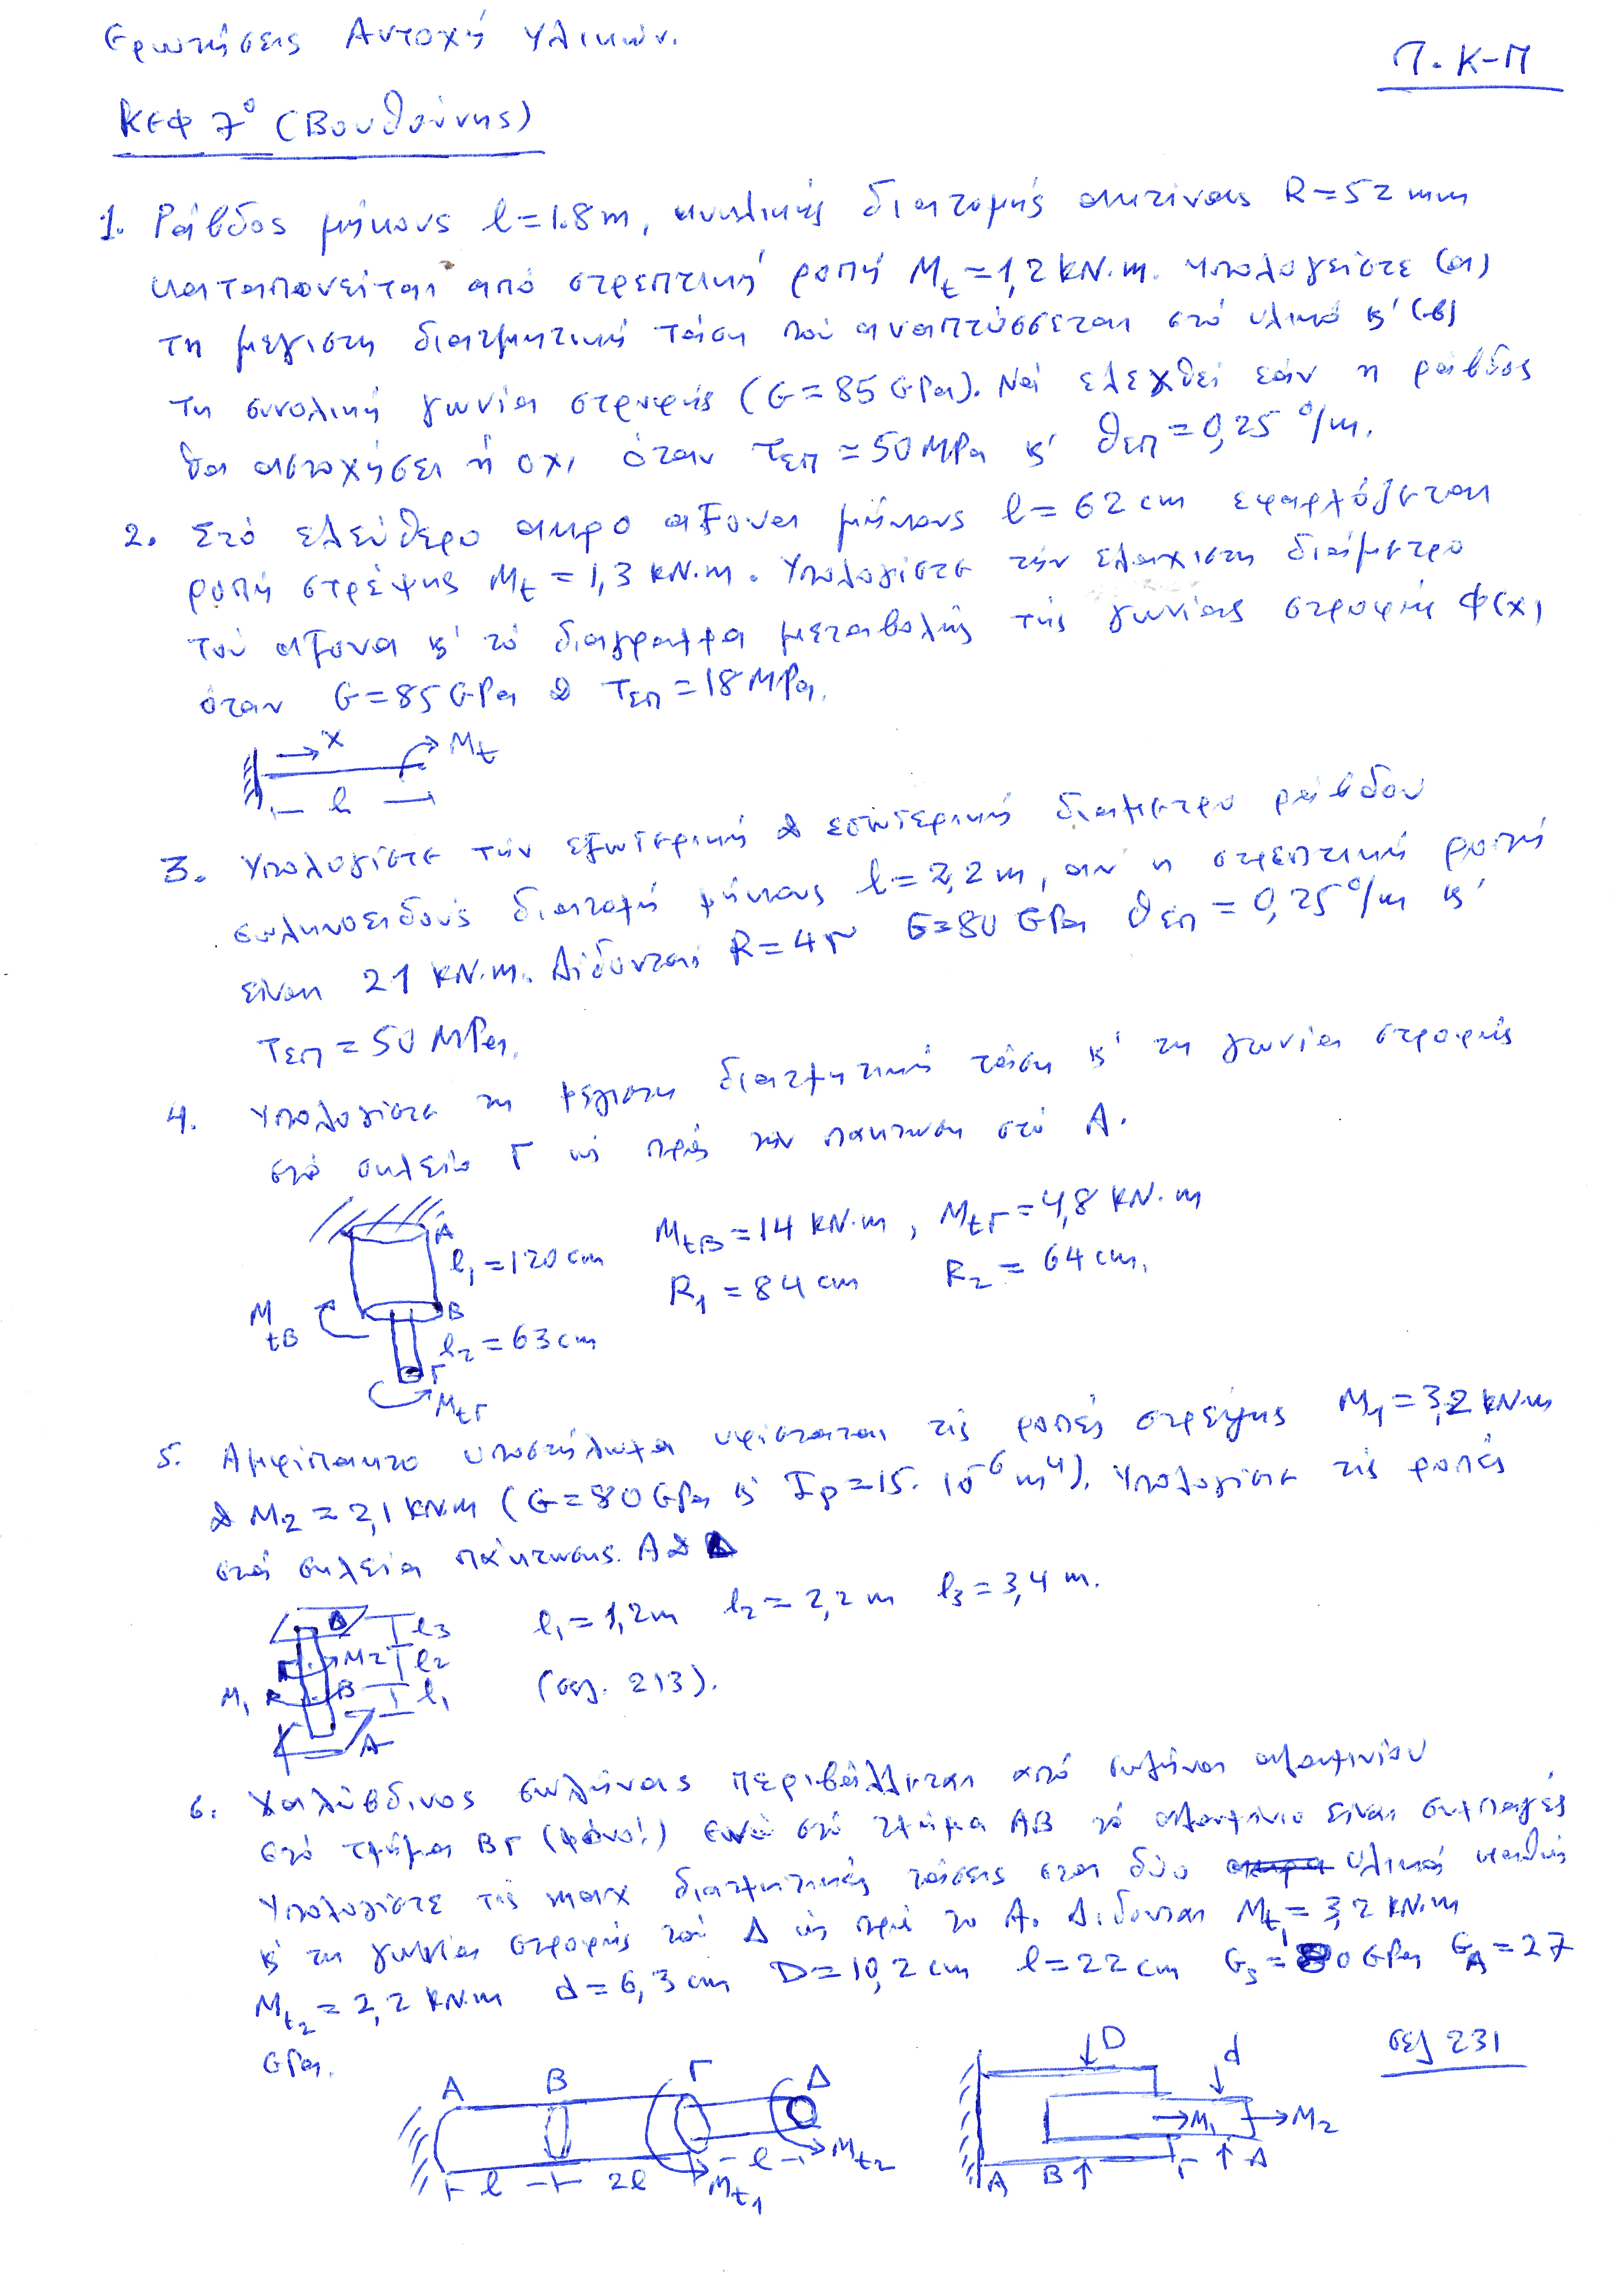 Ερωτήσεις Αντοχή Υλικών.
Π. Κ-Π
ΚΕΦ 7° (Βουθούνης)
1. Ράβδος μήκους l=1.8m, κυκλικής διατομής ακτίνας R=52mm
καταπονείται από στρεπτική ροπή Mt=1,2kN.m. Υπολογείστε (α)
τη μεγιστη διατμητική τάση πού αναπτύσσεται στό υλικό κ' (β)
τη συνολική γωνία στροφής (G=85GPa). Νά ελεχθεί εάν η ράβδος
θα αστοχήσει ή οχι όταν τεπ=50MPa κ' θεπ=0,25°/m.
2. Στό ελεύθερο ακρο αξονα μήκους l=62cm εφαρμόζεται
ροπή στρέψης Mt=1,3kN.m. Υπολογίστε τήν ελαχιστη διάμετρο
τού αξονα κ' τό διαγραμμα μεταβολής τής γωνίας στροφής φ(x)
όταν G=85GPa & τεπ=18MPa.
x Mt
l
3. Υπολογίστε τήν εξωτερική & εσωτερική διαμετρο ράβδου
σωληνοειδούς διατομή μήκους l=2,2m, αν η στρεπτική ροπή
είναι 21 kN.m. Δίδονται R=4r G=80GPa θεπ=0,25°/m κ'
τεπ=50MPa.
4. Υπολογίστε τη μέγιστη διατμητική τάση κ' τη γωνία στροφής
στό σημείο Γ ως πρός την πακτωση στό Α.
A
l1=120cm MtB=14kN.m, MtΓ=4,8kN.m
R1=84cm R2=64cm.
MtB B
l2=63cm
Γ
MtΓ
5. Αμφίπακτο υποστήλωμα υφίσταται τίς ροπές στρέψης M1=3,2kN.m
& M2=2,1kN.m (G=80GPa κ' Ip=15.10⁻⁶m⁴). Υπολογίστε τίς ροπές
στά σημεία πάκτωσης. Α & Δ
Δ l3 l1=1,2m l2=2,2m l3=3,4m.
Γ M2 l2
M1 B l1 (σελ. 213).
A
6. Χαλύβδινος σωλήνας περιβάλλεται από σωλήνα αλουμινίου
στό τμήμα ΒΓ (μόνο!) ενώ στό τμήμα ΑΒ τό αλουμίνιο είναι συμπαγές
Υπολογίστε τίς max διατμητικές τάσεις στα δύο υλικά καθώς
κ' τη γωνία στροφής τού Δ ως πρός το Α. Δίδονται Mt1=3,2kN.m
Mt2=2,2kN.m d=6,3cm D=10,2cm l=22cm Gs=80GPa GA=27
GPa.
σελ 231
A B Γ Δ
l 2l l Mt1 Mt2
D d
M1 M2
A B Γ Δ